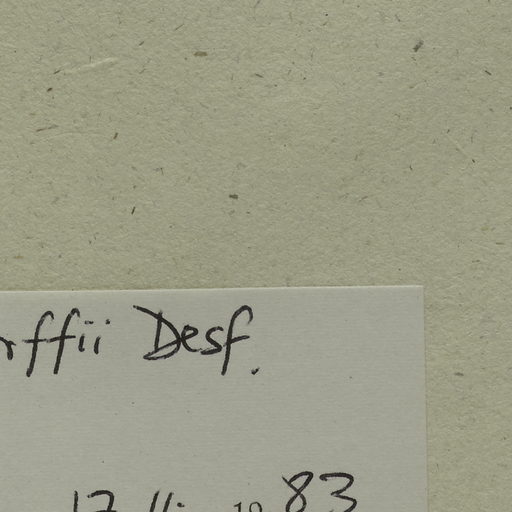 rffii Desf.
17 19 83